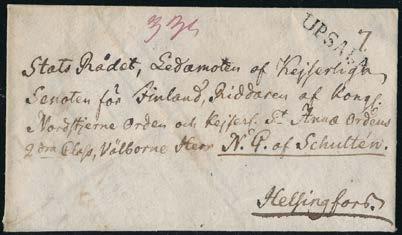 33½
UPSALA 7.
Stats Rådet, Ledamoten af Kejserliga
Senaten för Finland, Riddaren af Kongl.
Nordstjerne Orden och Kejserl. St Annæ Ordens
2dra Class, Välborne Herr N. G. af Schultén.
Helsingfors.